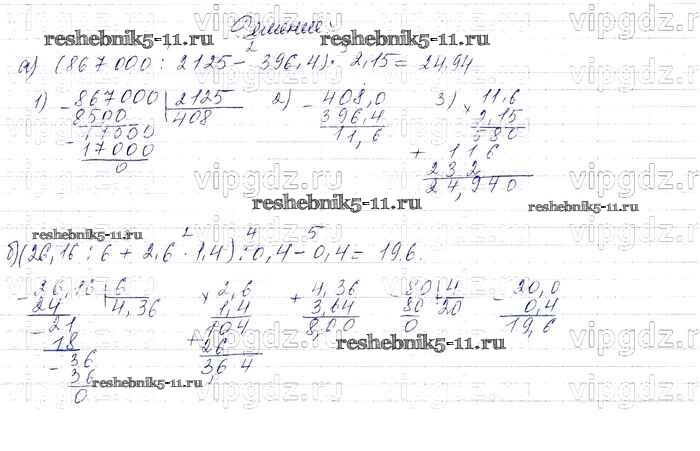 Решение
reshebnik5-11.ru reshebnik5-11.ru
2 3
а) (867000 : 2125 - 396,4) · 2,15 = 24,94
1) - 867000 2125 2) - 408,0 3) × 11,6
8500 408 396,4 2,15
- 17000 11,6 580
17000 + 116
0 232
24,940
vipgdz.ru vipgdz.ru vipgdz.ru
reshebnik5-11.ru reshebnik5-11.ru
reshebnik5-11.ru 2 4 5
б) (26,16 : 6 + 2,6 · 1,4) : 0,4 - 0,4 = 19,6.
- 26,16 6 × 2,6 + 4,36 - 80 4 - 20,0
24 4,36 1,4 3,64 80 20 0,4
- 21 104 8,00 0 19,6
18 + 26
- 36 3,64
36
0
reshebnik5-11.ru reshebnik5-11.ru
vipgdz.ru vipgdz.ru vipgdz.ru